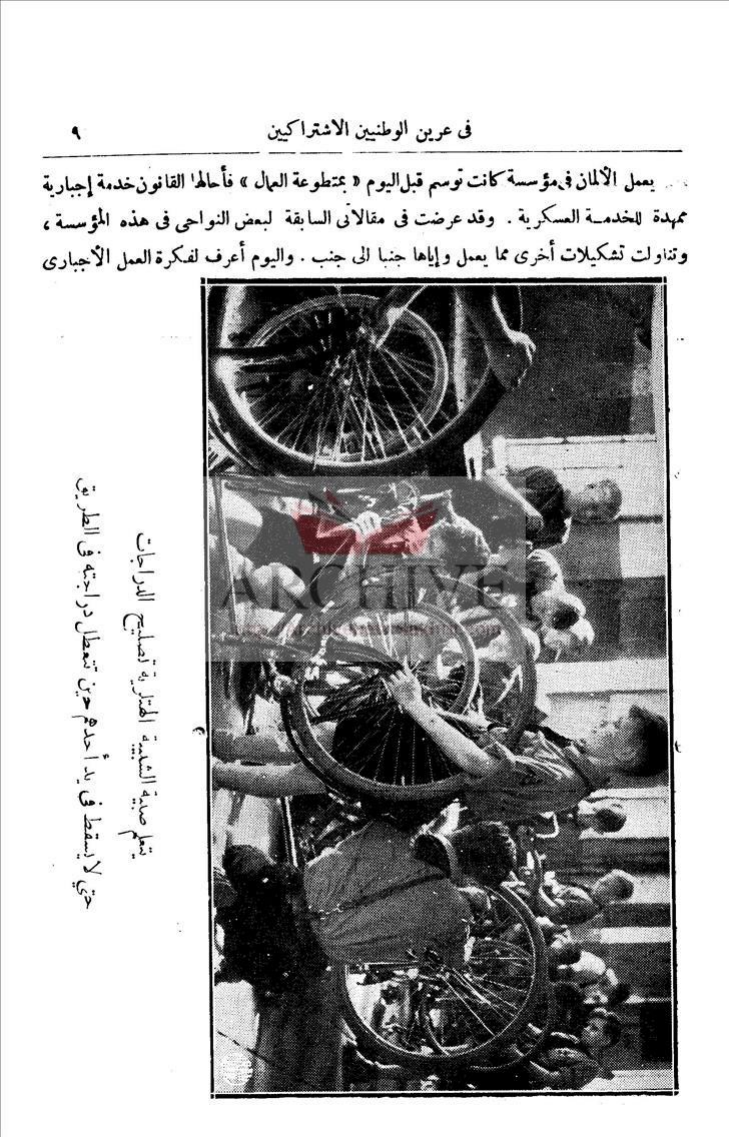 فى عرين الوطنيين الاشتراكيين ٩
يعمل الألمان فى مؤسسة كانت توسم قبل اليوم « بمتطوعة العمال » فأحالها القانون خدمة إجبارية
ممهدة للخدمة العسكرية . وقد عرضت فى مقالاتى السابقة لبعض النواحى فى هذه المؤسسة ،
وتناولت تشكيلات أخرى مما يعمل وإياها جنبا الى جنب . واليوم أعرف لفكرة العمل الأجبارى
يتعلم صبية الشبيبة الهتلرية تصليح الدراجات
حتي لا يسقط فى يد أحدهم حين تتعطل دراجته فى الطريق
ARCHIVE